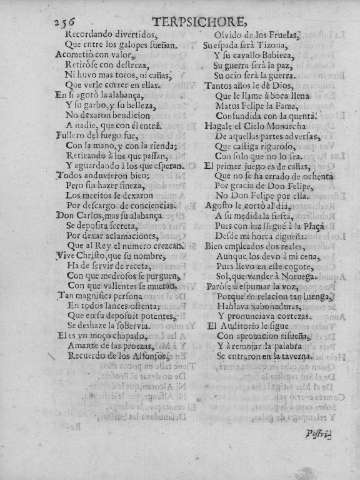 256 TERPSICHORE,
Recordando divertidos,
Que entre los galopes sueñan.
Acometiò con valor,
Retiròse con destreza,
Ni huvo mas toros, ni cañas,
Que verle correr en ellas.
En si agotò la alabança,
Y su garbo, y su belleza,
No dexaron bendicion
A nadie, que con èl entra.
Fullero del juego fue,
Con la mano, y con la rienda;
Retirando à los que passan,
Y aguardando à los que esperan.
Todos anduvieron bien;
Pero sin hazer fineza,
Los meritos se dexaron
Por descargo de conciencias.
Don Carlos, mas su alabança
Se deposita secreta,
Por dexar aclamaciones,
Que al Rey el numero crezcan.
Vive Christo, que su nombre,
Ha de servir de receta,
Con que medrosos se purguen,
Con que valientes se mueran.
Tan magnifica persona
En todos lances ostenta;
Que en su deposito potentes,
Se deshaze la sobervia.
El es un moço chapado,
Amante de las proezas,
Recuerdo de los Alfonsos,
Olvido de los Fruelas,
Su espada serà Tizona,
Y su cavallo Babieca,
Su guerra serà la paz,
Su ocio serà la guerra.
Tantos años le dè Dios,
Que le llame à boca llena
Matus Felipe la Fama,
Confundida con la quenta.
Hagale el Cielo Monarcha
De aquellas partes adversas,
Que castiga riguroso,
Con solo que no lo sea.
El primer juego es de cañas,
Que no se ha errado de ochenta
Por gracia de Don Felipe,
No Don Felipe por ella.
Agosto le cortò al dia,
A su medida la siesta,
Pues con luz llegué à la Plaça
Desde mi horca cigueña.
Bien empleados dos reales,
Aunque los devo à mi cena,
Pues llevo en este cogote,
Sol, que vender à Noruega.
Paròse à espumar la voz,
Porque en relacion tan luenga,
Hablava jabonaduras,
Y pronunciava cortezas.
El Auditorio le sigue
Con aprovacion risueña,
Y à remojar la palabra
Se entraron en la taverna.